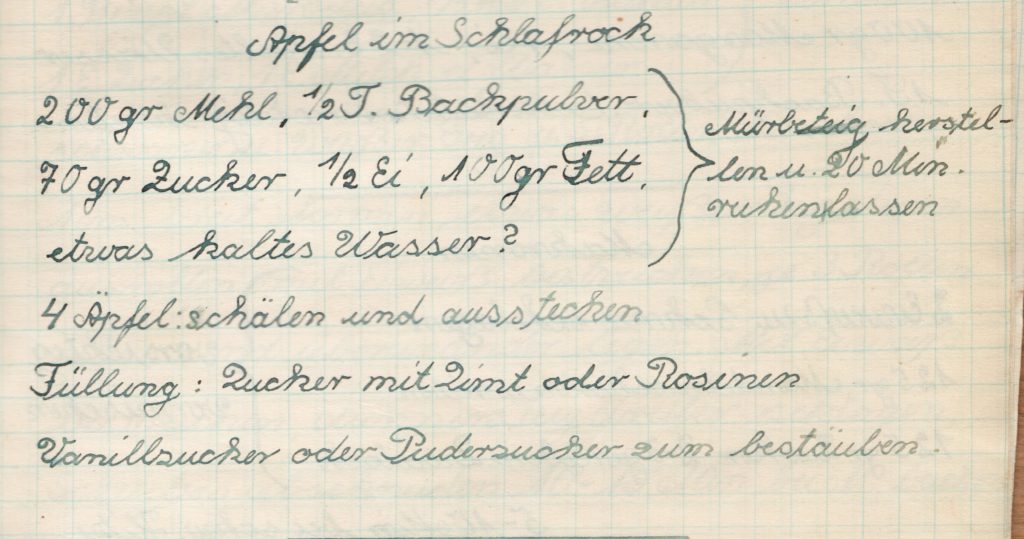 Apfel im Schlafrock
200gr Mehl, 1/2 T. Backpulver,
70gr Zucker, 1/2 Ei, 100gr Fett,
etwas kaltes Wasser?
Mürbeteig herstel-
len u. 20 Min.
ruhen lassen
4 Äpfel: schälen und ausstechen
Füllung: Zucker mit Zimt oder Rosinen
Vanillzucker oder Puderzucker zum bestäuben.